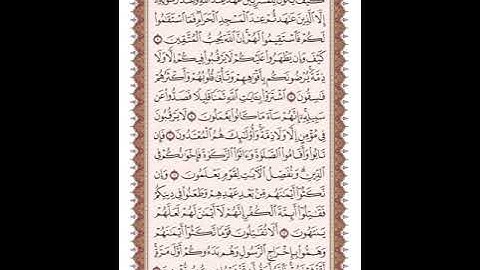 كَيْفَ يَكُونُ لِلْمُشْرِكِينَ عَهْدٌ عِندَ ٱللَّهِ وَعِندَ رَسُولِهِۦٓ
إِلَّا ٱلَّذِينَ عَٰهَدتُّمْ عِندَ ٱلْمَسْجِدِ ٱلْحَرَامِ فَمَا ٱسْتَقَٰمُوا۟
لَكُمْ فَٱسْتَقِيمُوا۟ لَهُمْ إِنَّ ٱللَّهَ يُحِبُّ ٱلْمُتَّقِينَ ٧
كَيْفَ وَإِن يَظْهَرُوا۟ عَلَيْكُمْ لَا يَرْقُبُوا۟ فِيكُمْ إِلًّا وَلَا
ذِمَّةً يُرْضُونَكُم بِأَفْوَٰهِهِمْ وَتَأْبَىٰ قُلُوبُهُمْ وَأَكْثَرُهُمْ
فَٰسِقُونَ ٨ ٱشْتَرَوْا۟ بِـَٔايَٰتِ ٱللَّهِ ثَمَنًا قَلِيلًا فَصَدُّوا۟ عَن
سَبِيلِهِۦٓ إِنَّهُمْ سَآءَ مَا كَانُوا۟ يَعْمَلُونَ ٩ لَا يَرْقُبُونَ
فِى مُؤْمِنٍ إِلًّا وَلَا ذِمَّةً وَأُو۟لَٰٓئِكَ هُمُ ٱلْمُعْتَدُونَ ١٠ فَإِن
تَابُوا۟ وَأَقَامُوا۟ ٱلصَّلَوٰةَ وَءَاتَوُا۟ ٱلزَّكَوٰةَ فَإِخْوَٰنُكُمْ فِى
ٱلدِّينِ وَنُفَصِّلُ ٱلْـَٔايَٰتِ لِقَوْمٍ يَعْلَمُونَ ١١ وَإِن
نَّكَثُوٓا۟ أَيْمَٰنَهُم مِّنۢ بَعْدِ عَهْدِهِمْ وَطَعَنُوا۟ فِى دِينِكُمْ
فَقَٰتِلُوٓا۟ أَئِمَّةَ ٱلْكُفْرِ إِنَّهُمْ لَآ أَيْمَٰنَ لَهُمْ لَعَلَّهُمْ
يَنتَهُونَ ١٢ أَلَا تُقَٰتِلُونَ قَوْمًا نَّكَثُوٓا۟ أَيْمَٰنَهُمْ
وَهَمُّوا۟ بِإِخْرَاجِ ٱلرَّسُولِ وَهُم بَدَءُوكُمْ أَوَّلَ مَرَّةٍ